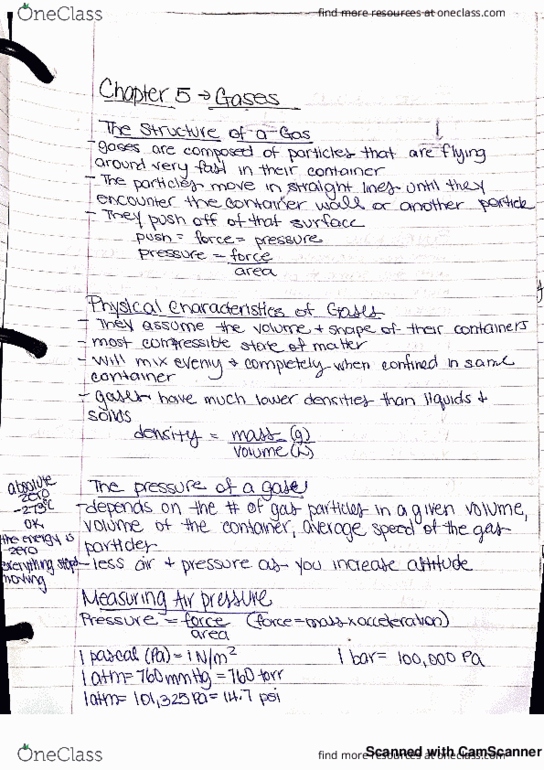 OneClass
find more resources at oneclass.com
Chapter 5 → Gases
The Structure of a Gas
- gases are composed of particles that are flying
around very fast in their container
- The particles move in straight lines until they
encounter the container wall or another particle
- They push off of that surface
push = force = pressure
pressure = force
area
Physical Characteristics of Gases
- They assume the volume + shape of their containers
- most compressible state of matter
- will mix evenly + completely when confined in same
container
- gases have much lower densities than liquids +
solids
density = mass (g)
volume (L)
The pressure of a gas
- depends on the # of gas particles in a given volume,
volume of the container, average speed of the gas
particles
- less air + pressure as you increase altitude
absolute
zero
-273°C
0K
the energy is
zero
everything stops
moving
Measuring Air pressure
Pressure = force (force = mass × acceleration)
area
1 pascal (Pa) = 1 N/m²
1 bar = 100,000 Pa
1 atm = 760 mmHg = 760 torr
1 atm = 101,325 Pa = 14.7 psi
OneClass
find more resources at oneclass.com
Scanned with CamScanner